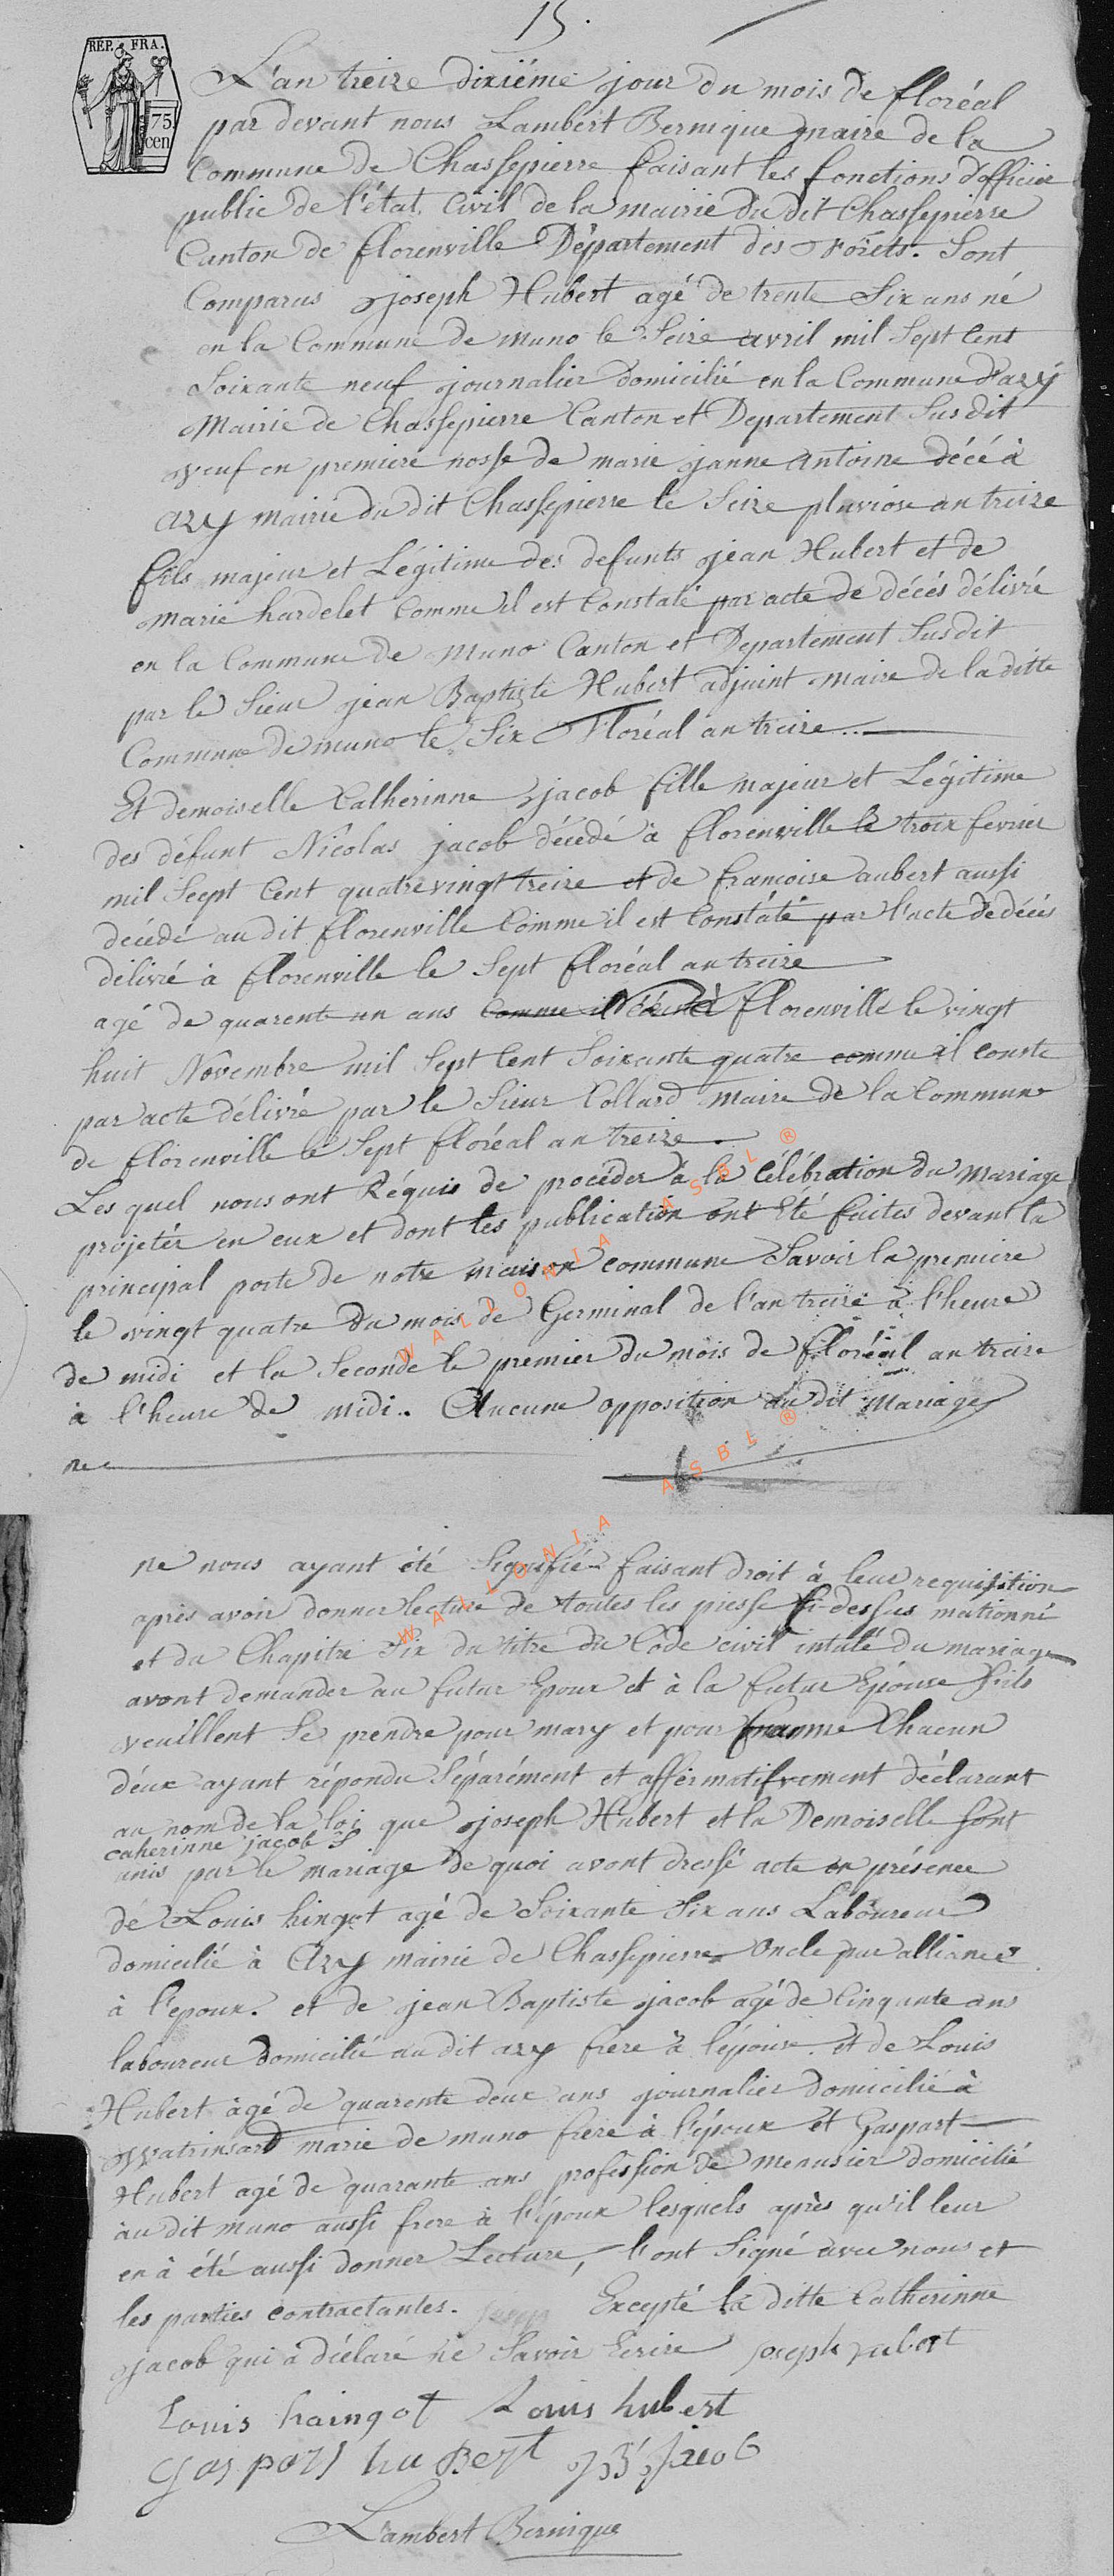 15.
REP. FRA.
75
cen
L'an treize dixiéme jour du mois de floréal
par devant nous Lambert Bernique maire de la
Commune de Chassepierre faisant les fonctions d'officier
public de l'état Civil de la mairie du dit Chassepierre
Canton de florenville Département des Forêts. Sont
Comparus joseph Hubert agé de trente Six ans né
en la Commune de muno le Seize avril mil Sept Cent
Soixante neuf journalier domicilié en la Commune d'azÿ
Mairie de Chassepierre Canton et Departement Susdit
veuf en premiere nosse de marie janne antoine décé à
azy mairie du dit Chassepierre le Seize pluviose an treize
fils majeur et Légitime des defunts jean Hubert et de
marie hardelet Comme il est Constaté par acte de décés délivré
en la Commune de Muno Canton et Departement Susdit
par le Sieur jean Baptiste Hubert adjoint Maire de la ditte
Commune de muno le Six Floréal an treize..
Et demoiselle Catherinne jacob fille majeur et Légitime
des défunt Nicolas jacob décédé à florenville le troix fevrier
mil Seept Cent quatrevingt treize et de francoise aubert aussi
décédé au dit florenville Comme il est Constaté par l'acte de décés
délivré à florenville le Sept floréal an treize
agé de quarente un ans Comme il florenville le vingt
huit Novembre mil Sept Cent Soixante quatre comme il conste
par acte délivré par le Sieur Collard Maire de la Commune
de florenville le Sept floréal an treize.
Les quel nous ont Réquis de procéder à la Célébration du Mariage
projetér en eux et dont les publication ont Eté faites devant la
principal porte de notre maison commune Savoir la premiere
le vingt quatre du mois de Germinal de l'an treize à l'heure
de midi et la Seconde le premier du mois de floréal an treize
à l'heure de midi.. Aucune opposition au dit Mariage
ne
WALLONIA ASBL ®
ne nous ayant été Signifié faisant droit à leur requisition
après avoir donner lecture de toutes les piesse si-dessus mentionné
et du Chapitre Six du titre du Code civil intulé du mariage
avont demander au futur Epoux et à la futur Epouse s'ils
veuillent Se prendre pour mary et pour famme Chacun
déux ayant répondu Séparément et affermatifvement déclarant
au nom de la loi que joseph Hubert et la Demoiselle sont
caherinne jacob
unis par le mariage de quoi avont dressé acte en présence
de Louis hingot agé de Soixante Six ans Laboureur
domicilié à Azy mairie de Chassepierre Oncle par alliance
à l'epoux. et de jean Baptiste jacob agé de Cinqante ans
laboureur domicilié au dit azy frere à l'épouse. et de Louis
Hubert àgé de quarente deux ans journalier domicilié à
Watrinsard marie de muno frere à l'époux et Gaspart
Hubert agé de quarante ans profession de menusier domicilié
au dit muno aussi frere à l'époux lesquels après qu'il leur
en à été aussi donner Lecture, l'ont Signé avec nous et
les parties contractantes. Excepté la ditte Catherinne
jacob qui à déclaré ne Savoir Ecrire joseph hubert
Louis haingot Louis hubert
Gaspart huBert jB jacob
Lambert Bernique
WALLONIA ASBL ®